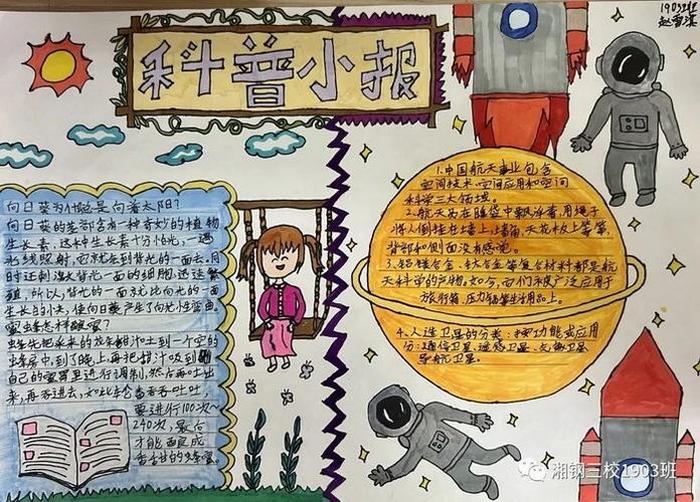 科普小报
1903班
向日葵为什么总是向着太阳?
向日葵的茎部含有一种奇妙的植物
生长素。这种生长素十分怕光。一遇
光线照射,它就会到背光的一面去。同
时还刺激背光一面的细胞迅速繁
殖,所以,背光的一面就比向光的一面
生长的快,使向日葵产生了向光性弯曲。
蜜蜂怎样酿蜜?
蜂先把采来的花朵甜汁吐到一个空的
蜂房中,到了晚上,再把甜汁吸到
自己的蜜胃里进行调制,然后再吐出
来,再吞进去,如此轮番吞吞吐吐,
要进行100次~
240次,最后
才能酿成
香甜的蜂蜜。
1.中国航天事业包含
空间技术、空间应用和空间
科学三大领域。
2.航天员在睡袋中飘浮着,用绳子
将人倒挂在墙上,墙角,天花板上等等,
背部和侧面没有感觉。
3.铝镁合金、钛合金等复合材料都是航
天科学的产物。如今,它们被广泛应用于
旅行箱、压力锅等生活用品上。
4.人造卫星的分类:按功能或应用
分:通信卫星、遥感卫星、气象卫星
导航卫星。
湘钢三校1903班